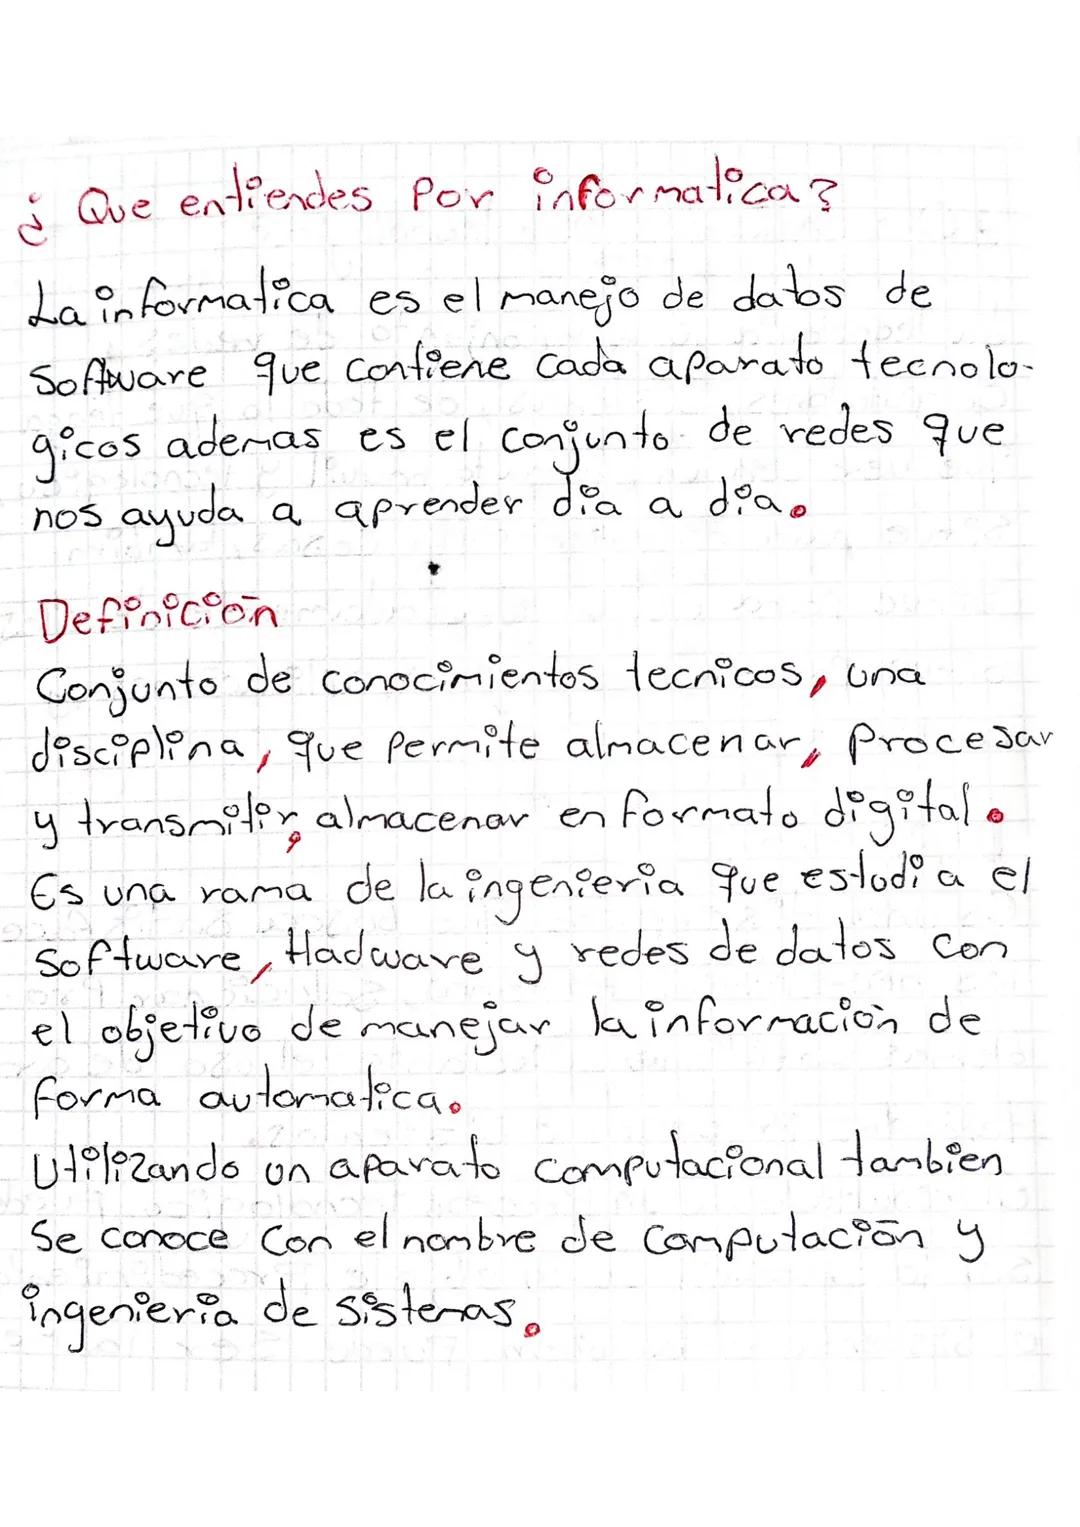 ¿Que entiendes Por informatica?
La informatica es el manejo de datos de
Software que contiene cada aparato tecnolo-
gicos ademas es el conjunto de redes que
nos ayuda a aprender dia a dia.
Definición
Conjunto de conocimientos tecnicos, una
disciplina, que Permite almacenar, Procesar
y transmitir, almacenar en formato digital.
Es una rama de la ingenieria que estudia el
Software, Hadware y redes de datos con
el objetivo de manejar la información de
forma automatica.
Utilizando un aparato computacional tambien
Se conoce Con el nombre de Computación y
ingenieria de sistemas.